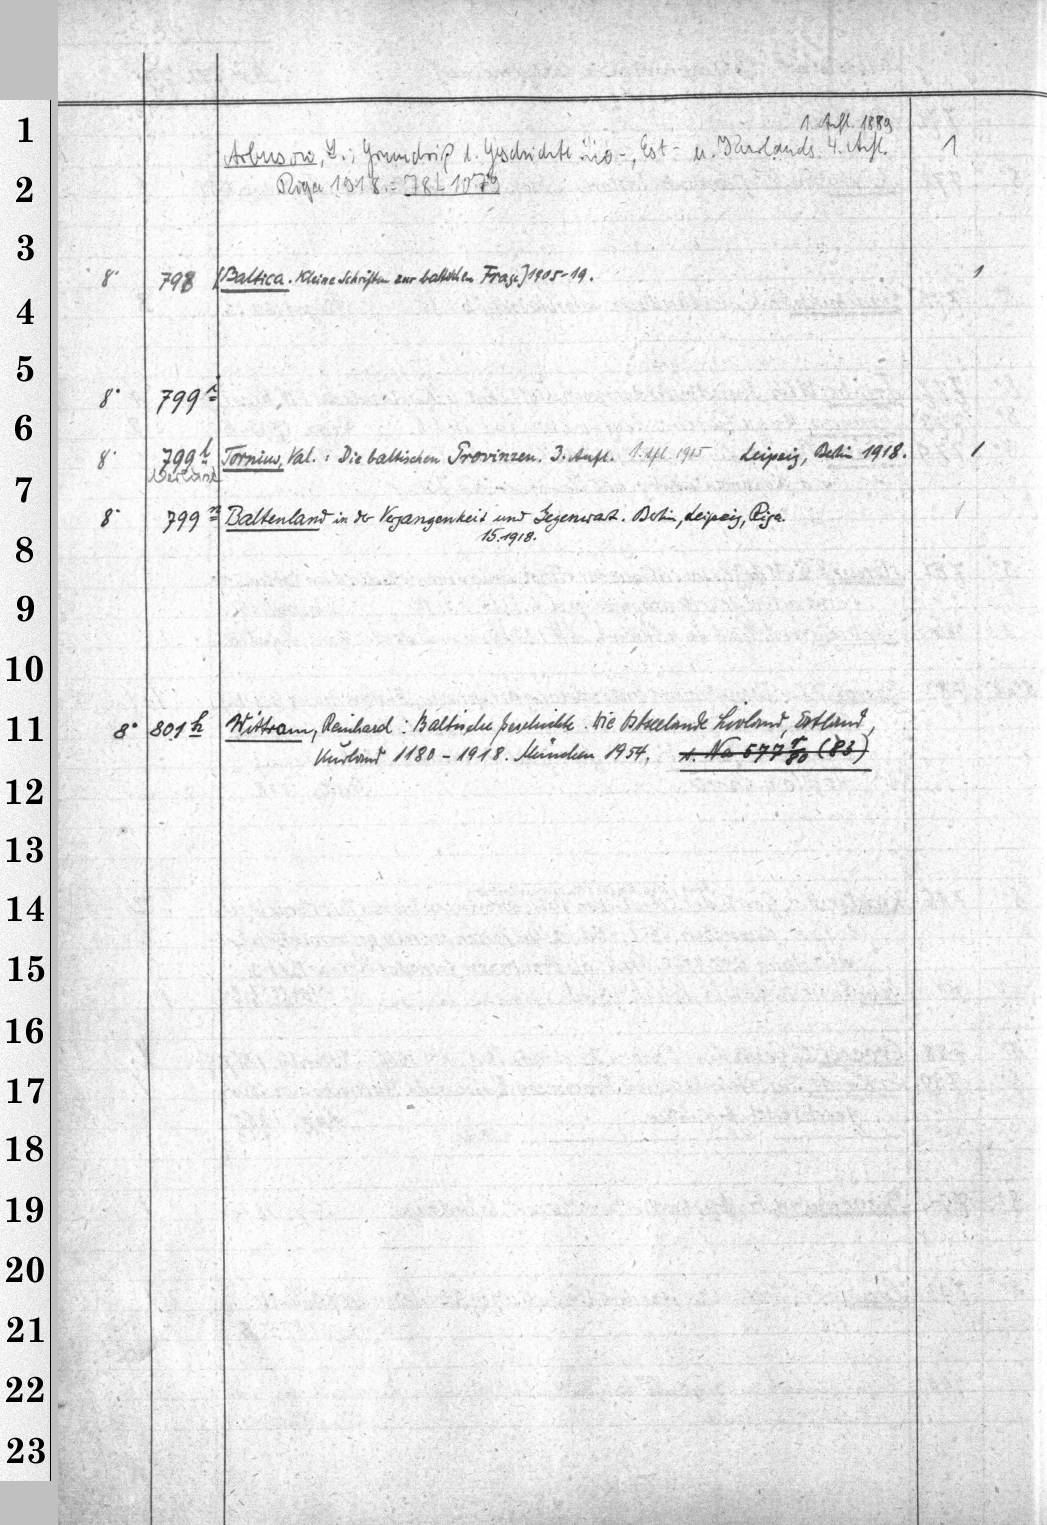 1
1. Aufl. 1889
Arbusow, L.: Grundriß d. Geschichte Liv-, Est- u. Kurlands. 4. Aufl. 1
2
Riga 1918 = 78 L 1079
3
8° 798 [Baltica. Kleine Schriften zur baltischen Frage] 1905-19. 1
4
5
8° 799 i
6
8° 799 l Tornius, Val.: Die baltischen Provinzen. 3. Aufl. 1. Afl 1915 Leipzig, Berlin 1918. 1
7
8° 799 n Baltenland in der Vergangenheit und Gegenwart. Berlin, Leipzig, Riga.
15.1918.
8
9
10
11
8° 801 h Wittram, Reinhard: Baltische Geschichte. Die Ostseelande Livland, Estland,
Kurland 1180-1918. München 1954. s. Na 577 r/80 (83)
12
13
14
15
16
17
18
19
20
21
22
23